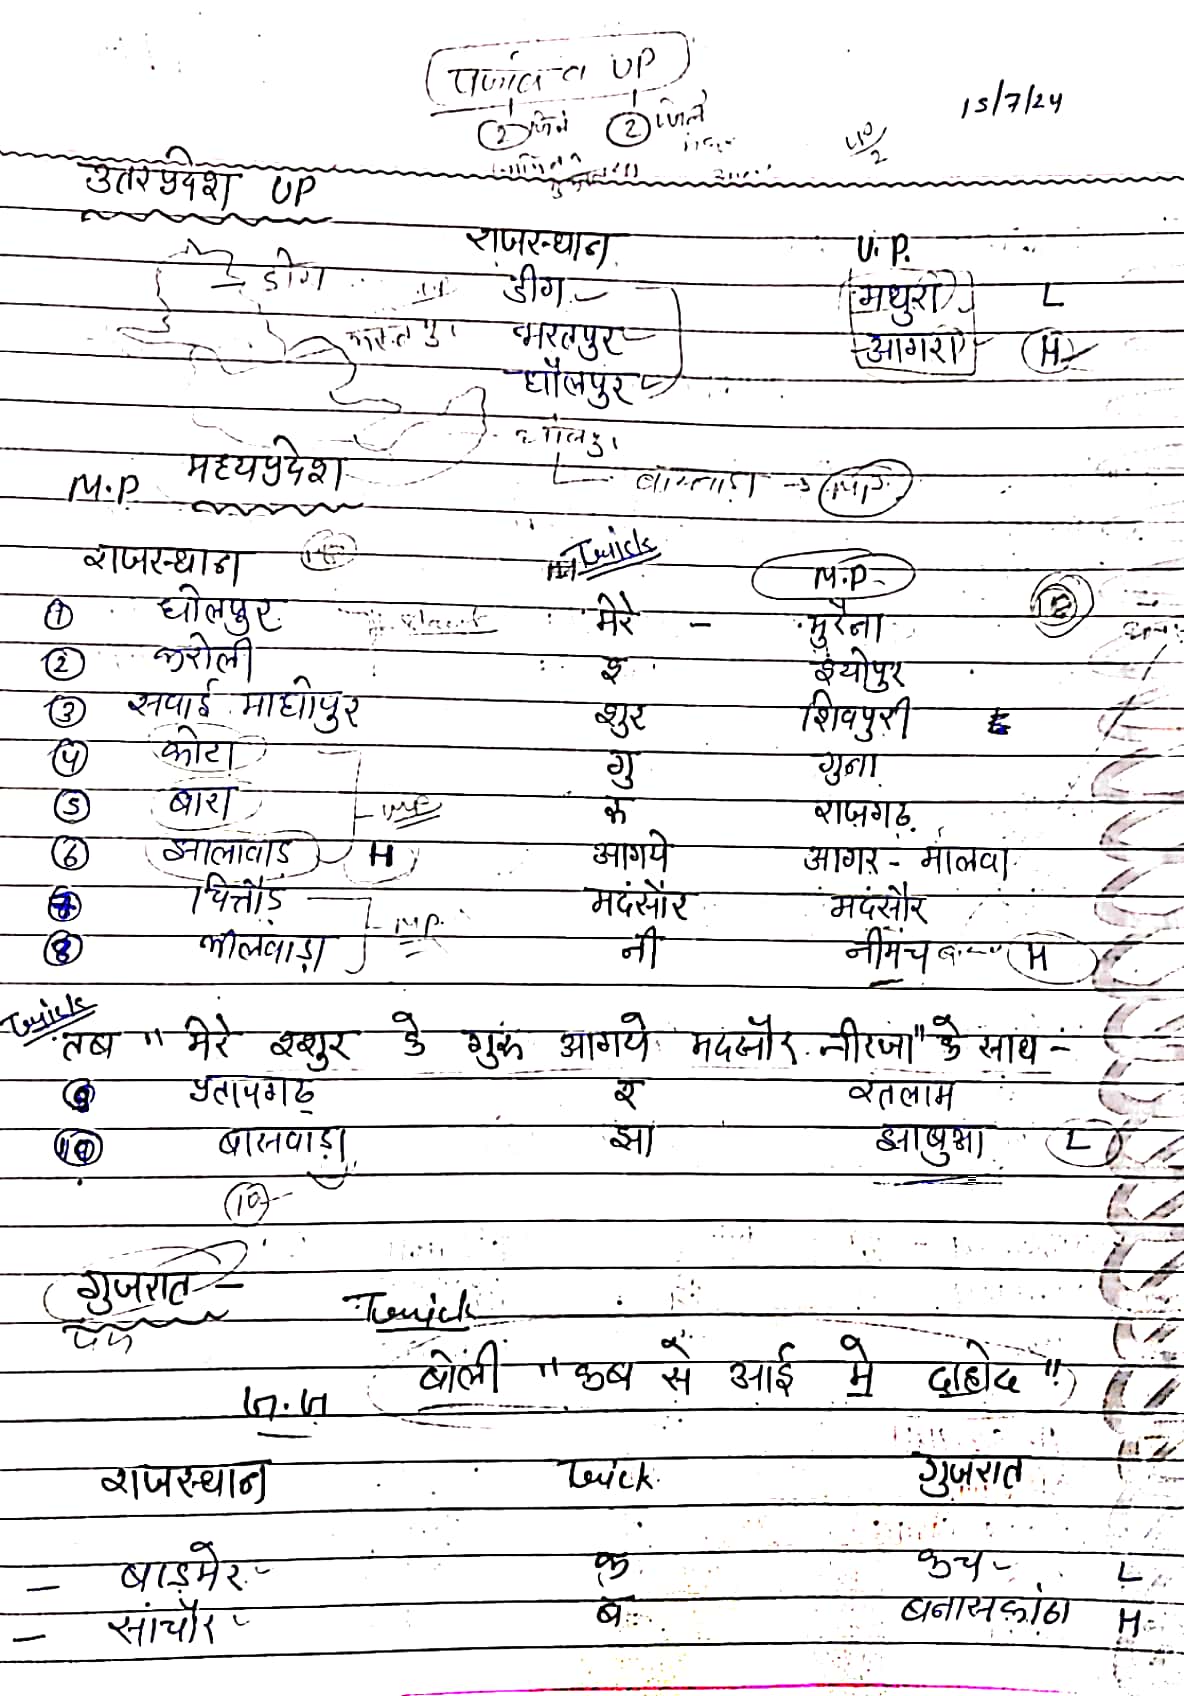 UP
2 जिले 2 जिले
15/7/24
UP/2
उतरप्रदेश UP
राजस्थान U.P.
डीग डीग मथुरा L
भरतपुर आगरा H
धौलपुर
M.P मध्यप्रदेश
राजस्थान Trick M.P
① धोलपुर मेरे - मुरैना
② करोली श श्योपुर
③ सवाई माधोपुर शुर शिवपुरी
④ कोटा गु गुना
⑤ बारा के राजगढ़
⑥ झालावाड़ H आगये आगर - मालवा
⑦ चित्तौड़ मदंसौर मदंसौर
M.P.
⑧ भीलवाड़ा नी नीमच H
Trick तब " मेरे श्शुर के गुरू आगये मदसौर नीरजा" के साथ -
⑨ प्रतापगढ़ र रतलाम
⑩ बासवाड़ा झा झाबुआ L
10
गुजरात -
Trick
बोली "कब से आई मे दाहोद"
राजस्थान Trick गुजरात
- बाड़मेर - क कच - L
- सांचौर - ब बनासकांठा H